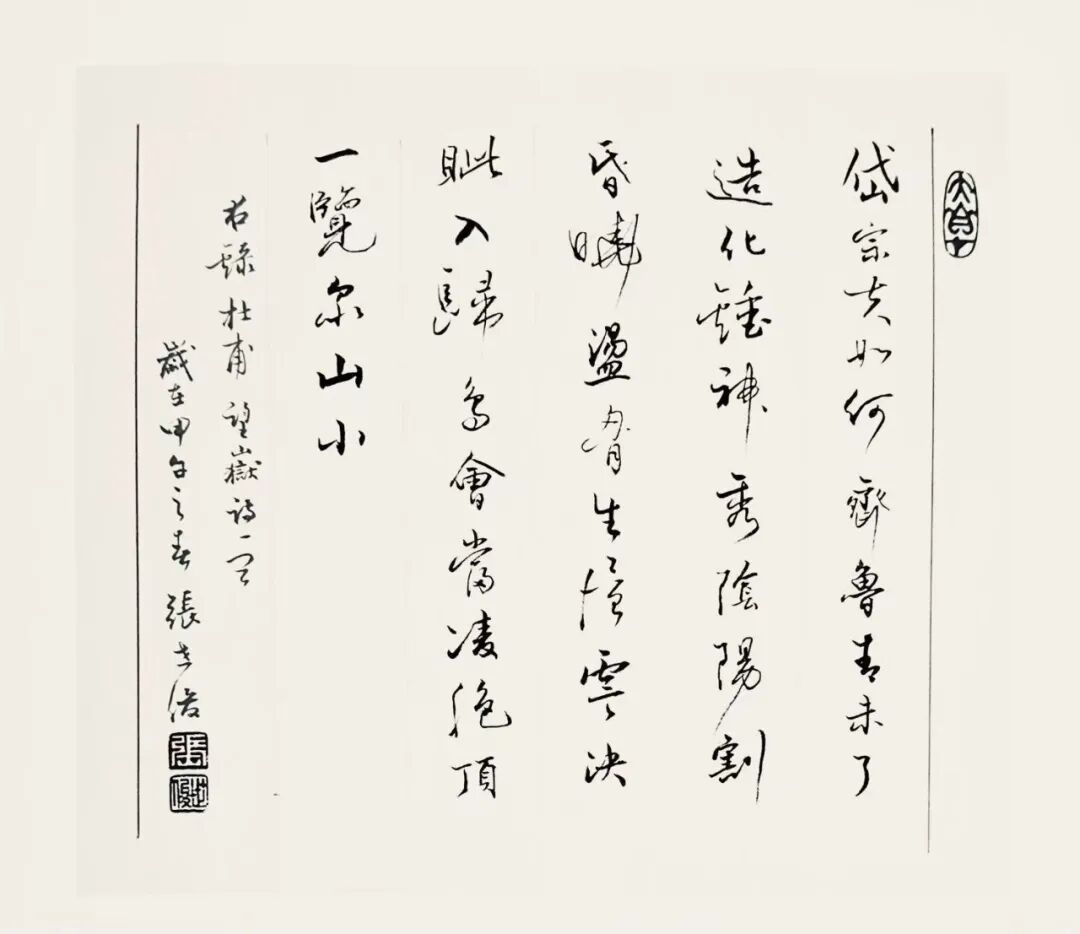 岱宗夫如何齊魯青未了
造化鍾神秀陰陽割
昏曉盪胷生層雲決
眦入歸鳥會當凌絕頂
一覽眾山小
右錄杜甫望嶽詩一首
歲在甲午之春 張世俊